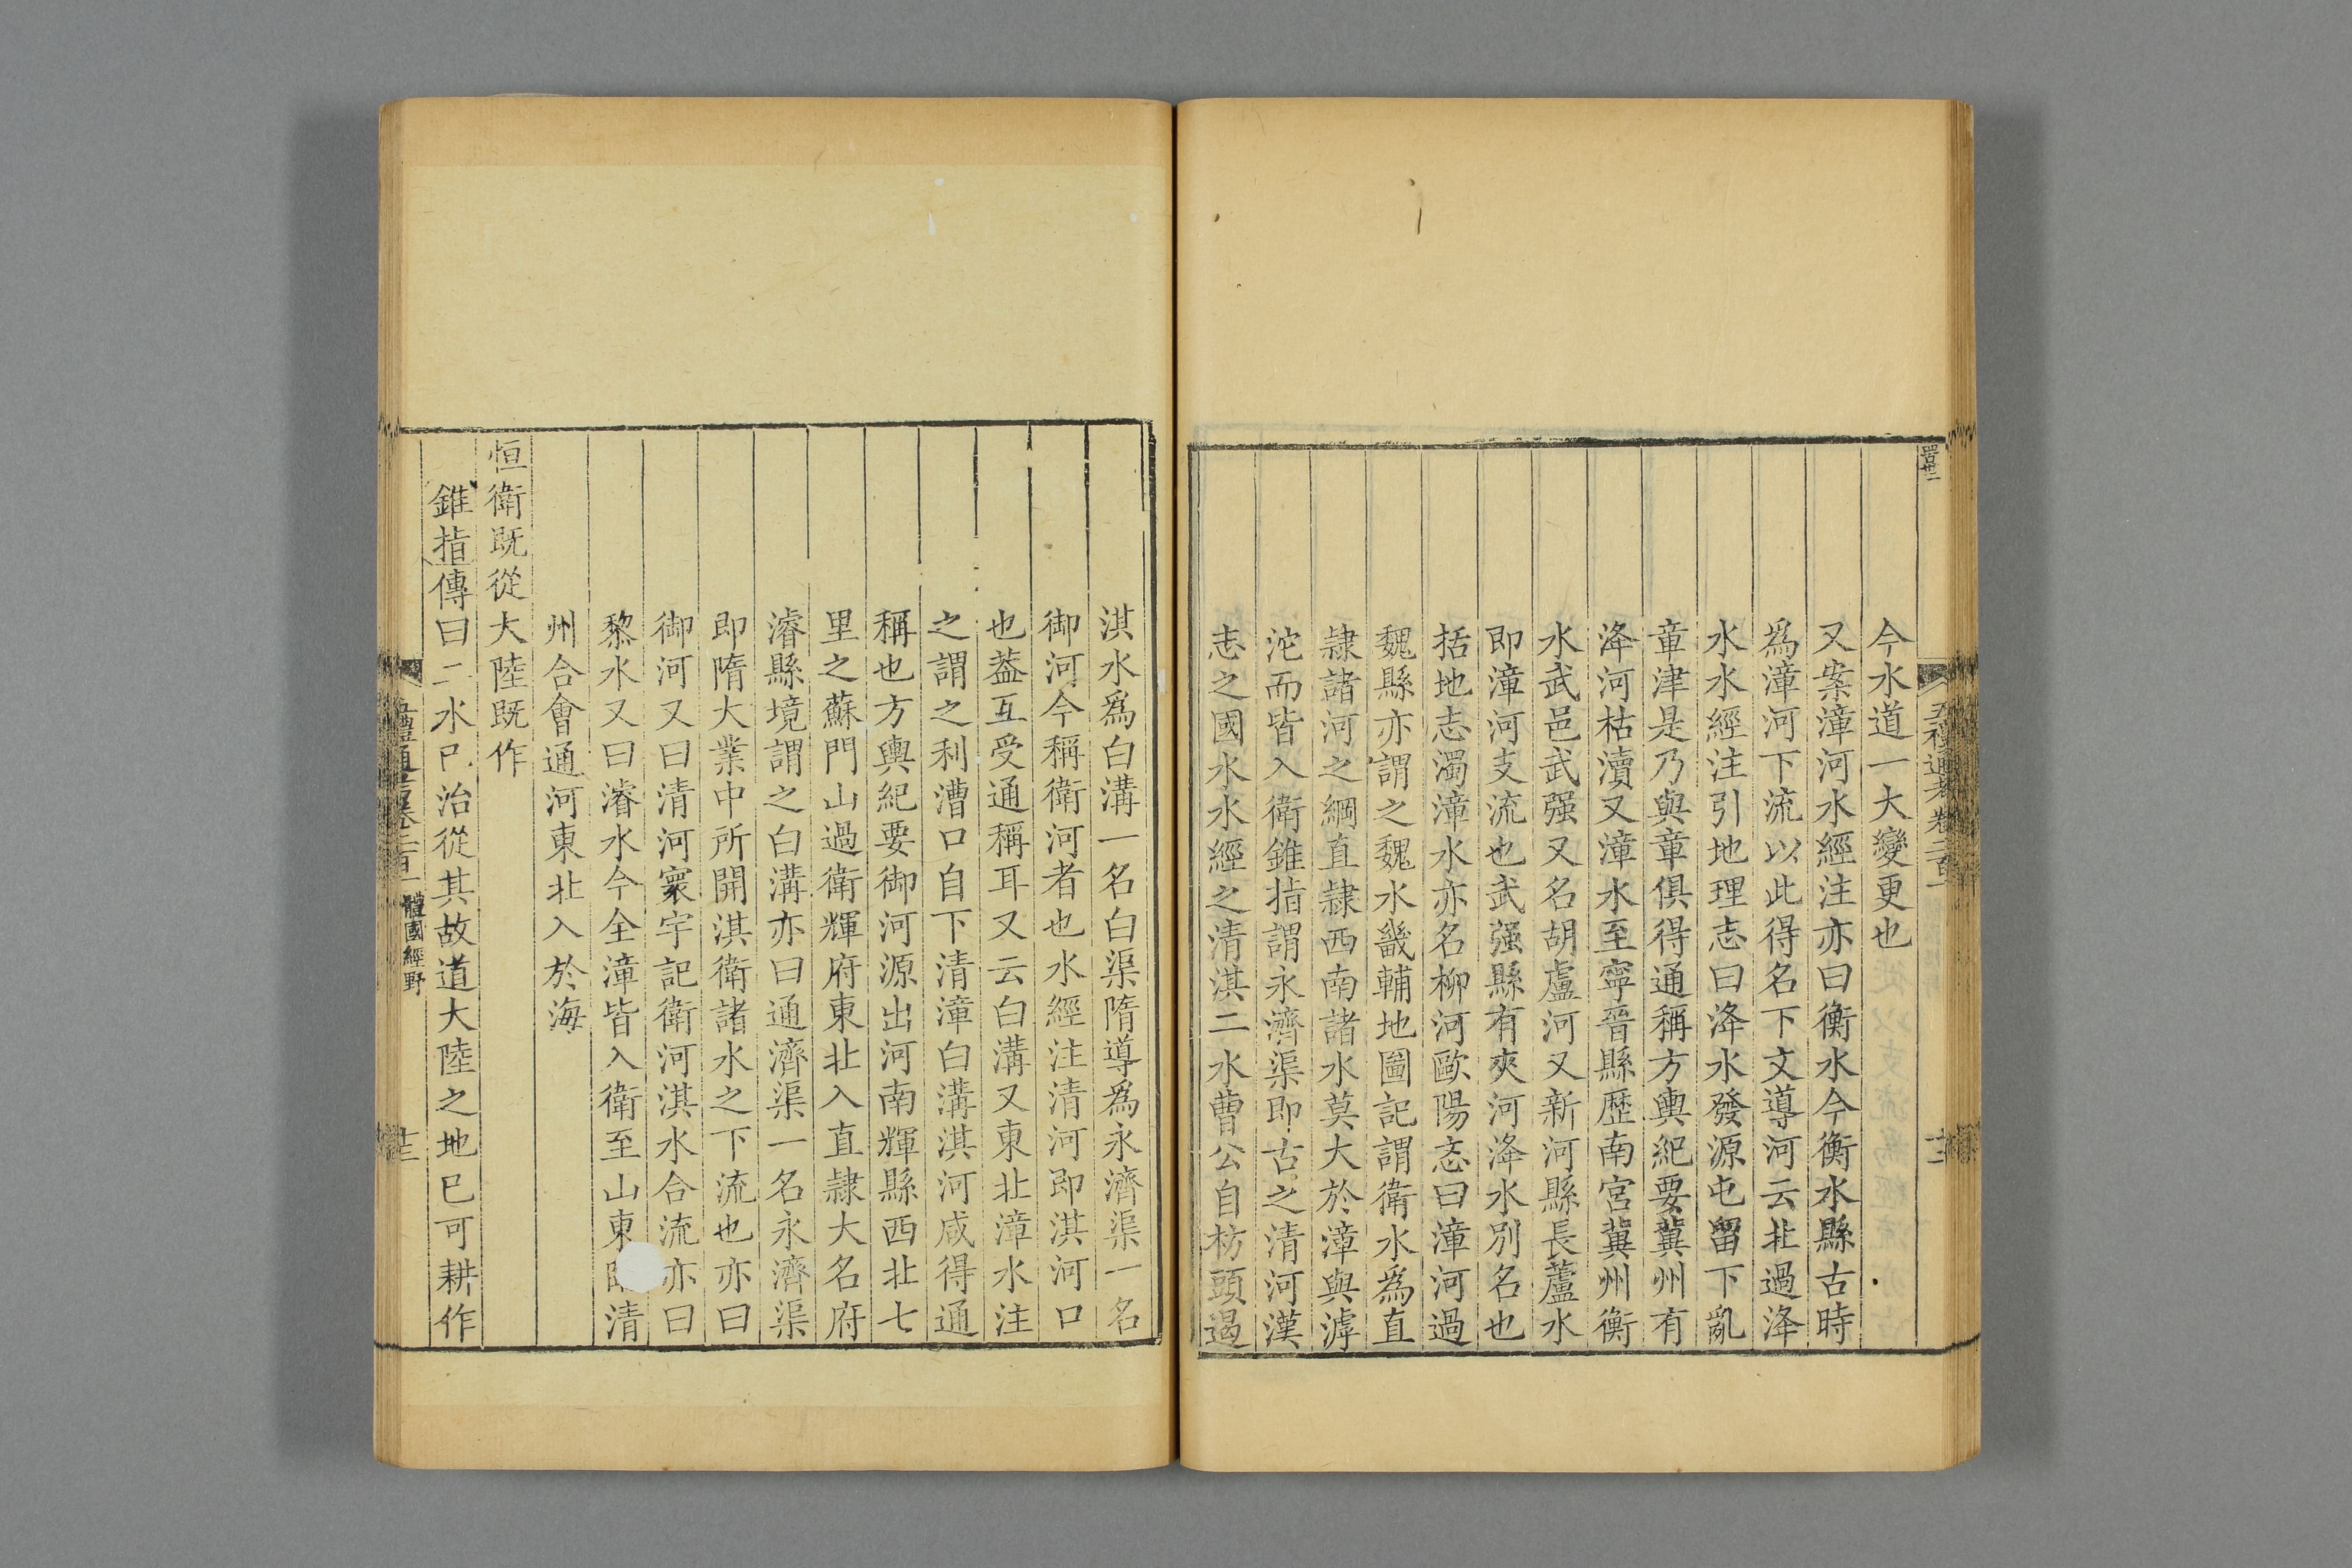 今水道一大變更也
又案漳河水經注亦曰衡水今衡水縣古時
爲漳河下流以此得名下文導河云北過洚
水水經注引地理志曰洚水發源屯留下亂
章津是乃與章俱得通稱方輿紀要冀州有
洚河枯瀆又漳水至寧晉縣歷南宮冀州衡
水武邑武强又名胡盧河又新河縣長蘆水
即漳河支流也武强縣有夾河洚水別名也
括地志濁漳水亦名柳河歐陽忞曰漳河過
魏縣亦謂之魏水畿輔地圖記謂衛水爲直
隷諸河之綱直隷西南諸水莫大於漳與滹
沱而皆入衛錐指謂永濟渠即古之清河漢
志之國水水經之清淇二水曹公自枋頭遏
淇水爲白溝一名白渠隋導爲永濟渠一名
御河今稱衛河者也水經注清河即淇河口
也葢互受通稱耳又云白溝又東北漳水注
之謂之利漕口自下清漳白溝淇河咸得通
稱也方輿紀要御河源出河南輝縣西北七
里之蘇門山過衛輝府東北入直隷大名府
濬縣境謂之白溝亦曰通濟渠一名永濟渠
即隋大業中所開淇衛諸水之下流也亦曰
御河又曰清河寰宇記衛河淇水合流亦曰
黎水又曰濬水今全漳皆入衛至山東清
州合會通河東北入於海
恒衛既從大陸既作
錐指傳曰二水已治從其故道大陸之地已可耕作
五禮通考卷二百一
體國經野
十三